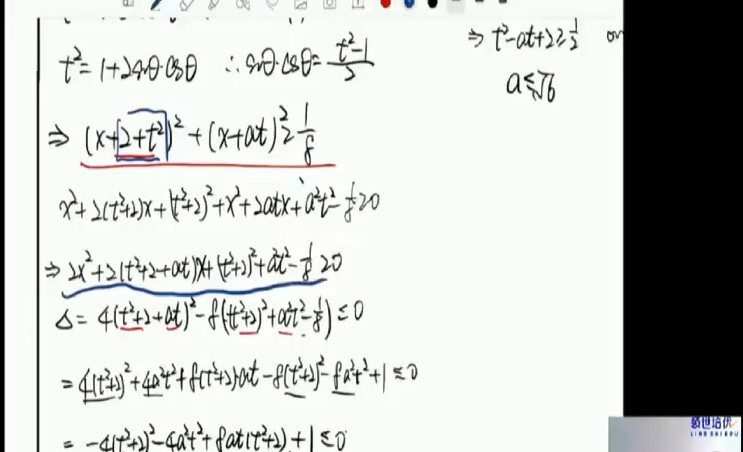 t² = 1+2sinθ·cosθ ∴ sinθ·cosθ = \frac{t²-1}{2}
⇒ t²-at+2≥\frac{1}{2} or
a≤√6
⇒ (x+2+t²)² + (x+at)² ≥ \frac{1}{8}
x²+2(t²+2)x+(t²+2)²+x²+2atx+a²t²-\frac{1}{8}≥0
⇒ 2x²+2(t²+2+at)x+(t²+2)²+a²t²-\frac{1}{8}≥0
Δ= 4(t²+2+at)²-8((t²+2)²+a²t²-\frac{1}{8})≤0
= 4(t²+2)²+4a²t²+8(t²+2)·at-8(t²+2)²-8a²t²+1≤0
= -4(t²+2)²-4a²t²+8at(t²+2)+1≤0